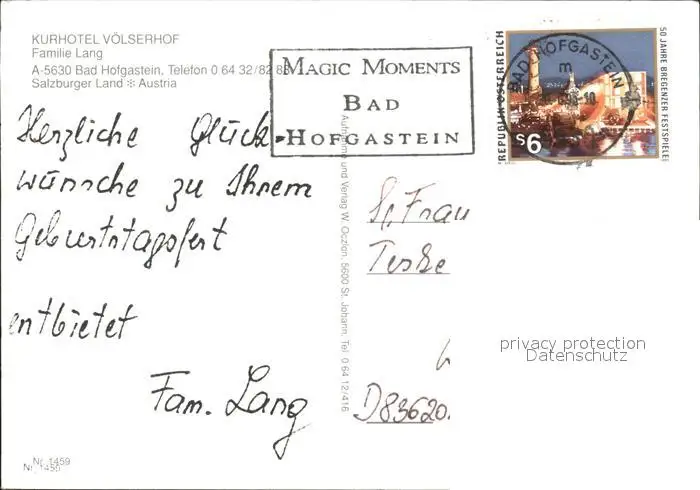 KURHOTEL VÖLSERHOF
Familie Lang
A-5630 Bad Hofgastein, Telefon 0 64 32/82 88
Salzburger Land ✻ Austria
Herzliche Glück-
wünsche zu Ihrem
Geburtstagsfest
entbietet
Fam. Lang
Nr. 1459
Nr. 1459
MAGIC MOMENTS
BAD
HOFGASTEIN
Aufnahme und Verlag W. Oczlon, 5600 St. Johann, Tel. 0 64 12/416
REPUBLIK ÖSTERREICH
50 JAHRE BREGENZER FESTSPIELE
S6
BAD HOFGASTEIN
m
Frau
Teske
D83620
privacy protection
Datenschutz